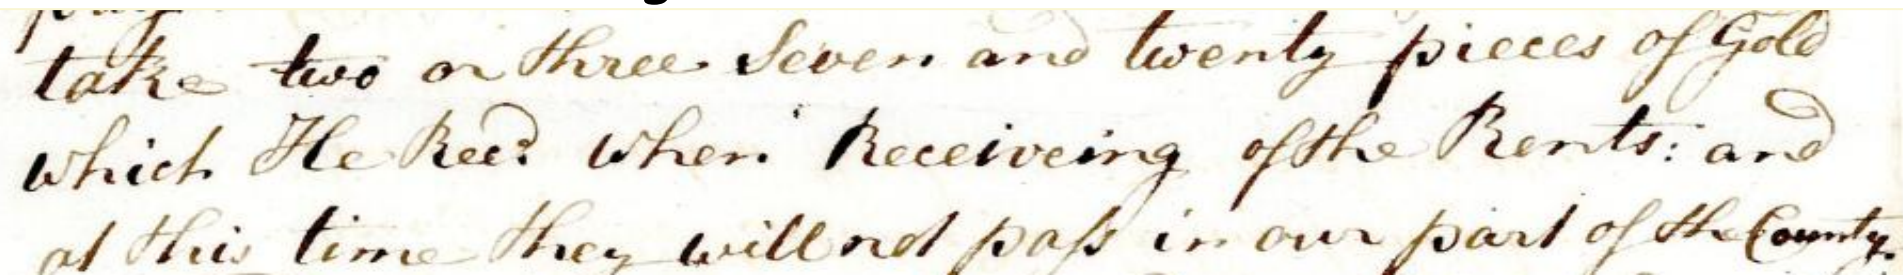 take two or three Seven and twenty pieces of Gold
which He Recd when Receiveing of the Rents: and
at this time they will not pass in our part of the County.